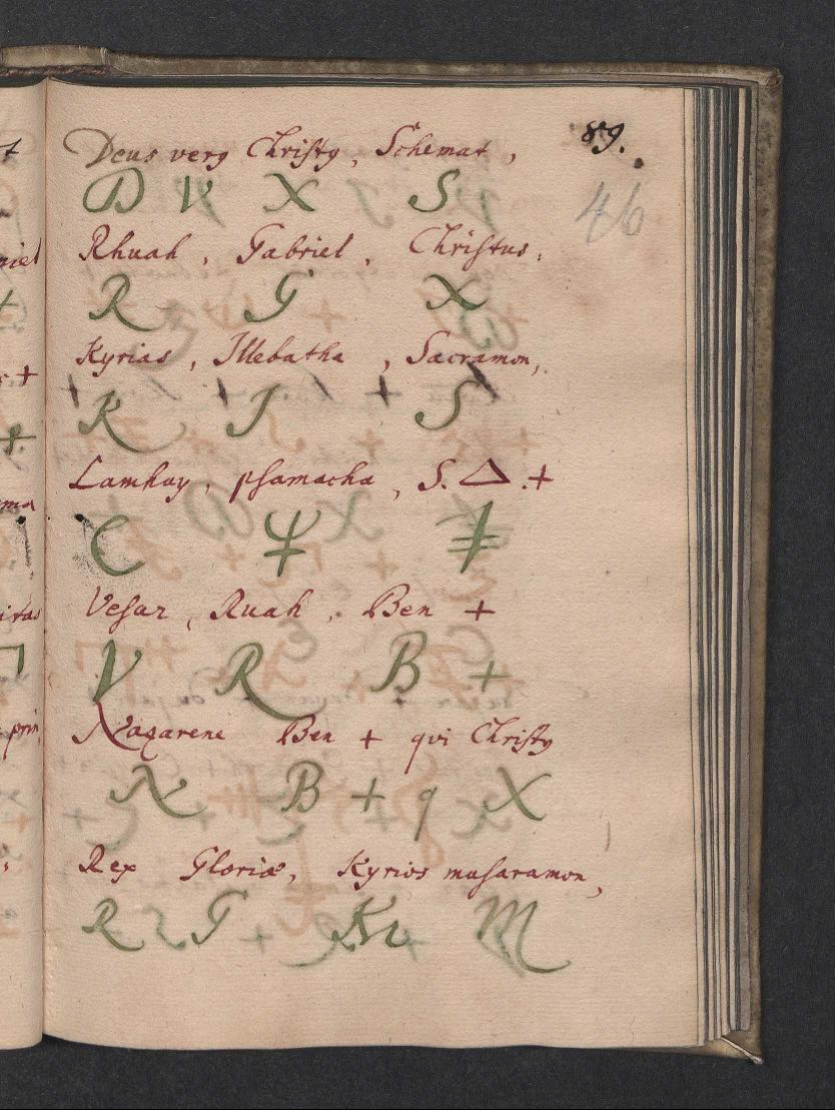 89.
46
Deus very Christy, Schemat,
D V X S
Rhuah, Gabriel, Christus,
R G X
Kyrias, Illebatha, Sacramon,
+ + / +
K I S
Lamhay, psamacha, S. Δ. +
Ψ
Vesar, Ruah, Ben +
V R B +
Nazarene Ben + qvi Christy
N B + q X
Rex Gloriæ, Kyrios musaramon,
R G K M